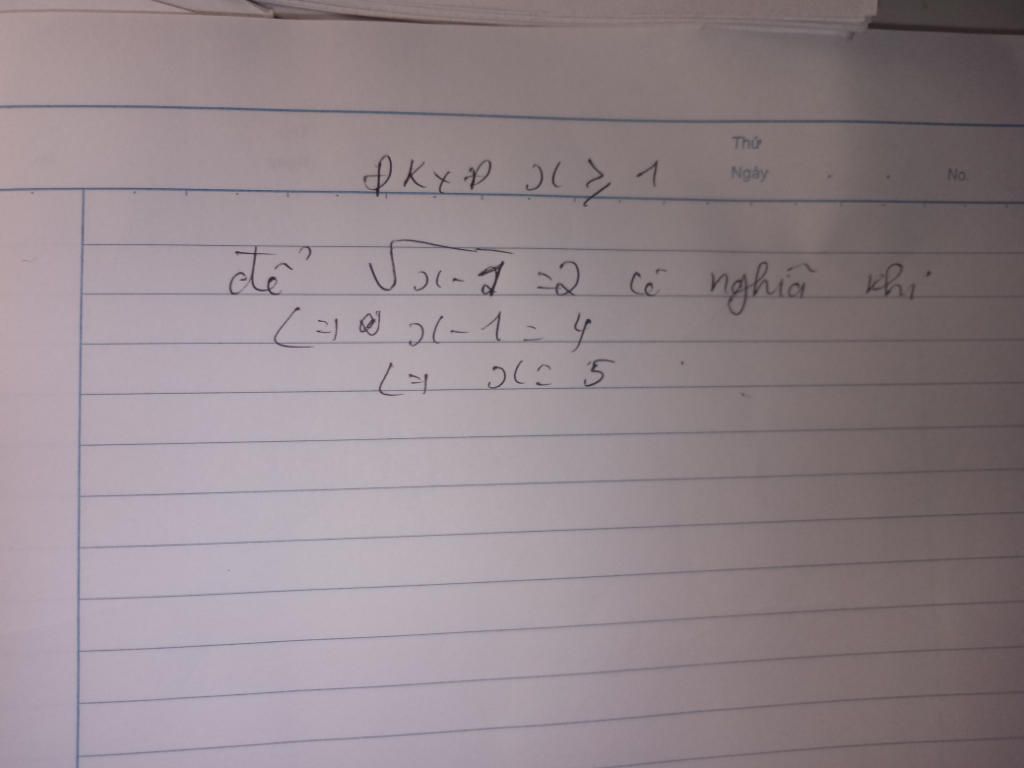 Thứ
Ngày No.
ĐKXĐ x ≥ 1
để √x-1 = 2 có nghĩa khi
<=> x - 1 = 4
<=> x = 5